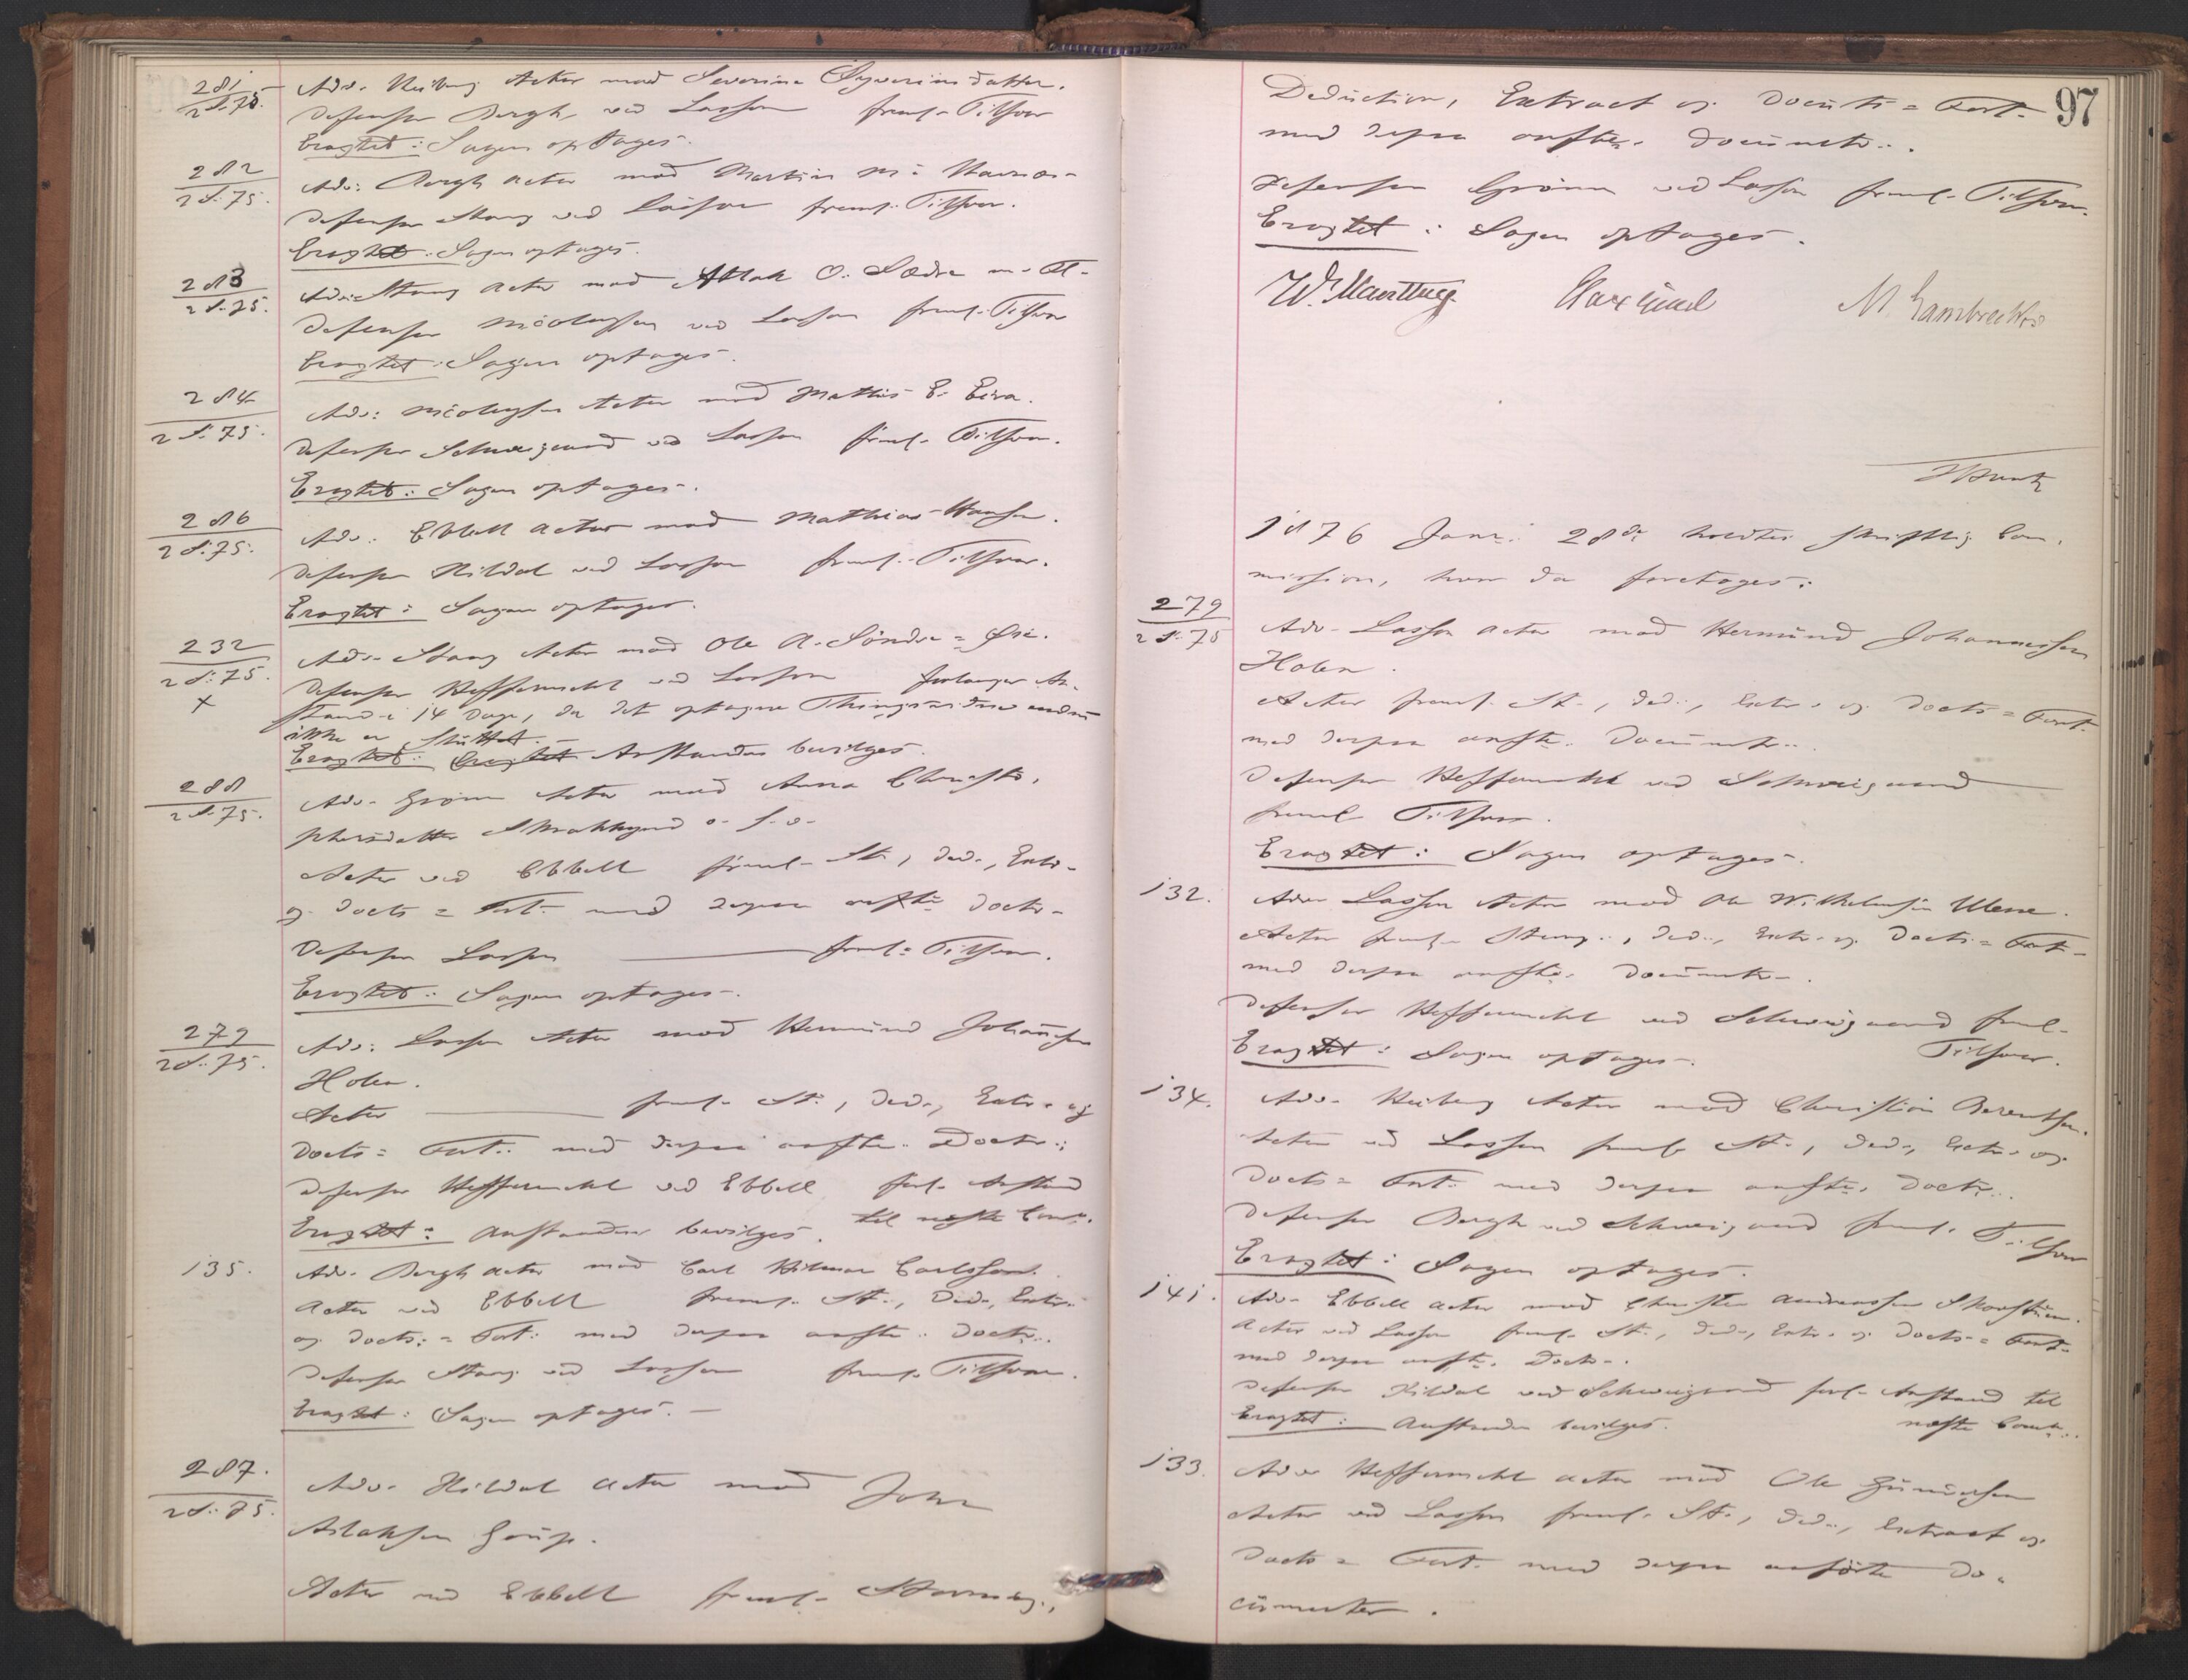 281
2 S. 75
Adv. Heiberg Actor mod Severine Syverinsdatter.
Defensor Bergh ved Lasson freml. Tilsvar
Eragtet: Sagen optages.
282
2 S. 75.
Adv: Bergh Actor mod Martin M.
Defensor Stang ved Lasson freml. Tilsvar.
Eragtet: Sagen optages.
283
2 S. 75.
Adv: Stang Actor mod Aslak O.
Defensor Nicolaysen ved Lasson freml. Tilsvar
Eragtet: Sagen optages.
284
2 S. 75.
Adv: Nicolaysen Actor mod Mathis E. Eira.
Defensor Schweigaard ved Lasson freml. Tilsvar.
Eragtet: Sagen optages.
286
2 S. 75.
Adv: Ebbell Actor mod Mathias Hansen.
Defensor Kildal ved Lasson freml. Tilsvar.
Eragtet: Sagen optages.
232
2 S. 75.
x
Adv. Stang Actor mod Ole A. Söndre =
Defensor Hefermehl ved Lasson forlanger An-
stand i 14 Dage, da det optagne Thingsvidne endnu
ikke er sluttet.
Eragtet: Anstanden bevilges.
288
2 S. 75.
Adv. Grönn Actor mod Anna Christo-
phersdatter o. s. v.
Actor ved Ebbell freml. St., Ded., Extr.
og Docts = Fort. med derpaa anførte Doctr.
Defensor Lasson freml. Tilsvar.
Eragtet: Sagen optages.
279
2 S. 75.
Adv: Lasson Actor mod Hermund Johannesen
Holen.
Actor freml. St., Ded., Extr. og
Docts = Fort. med derpaa anførte Doctr.
Defensor Hefermehl ved Ebbell forl. Anstand
til næste Com.
Eragtet: Anstanden bevilges.
135.
Adv. Bergh Actor mod Carl Hilmar Carlsson.
Actor ved Ebbell freml. St., Ded., Extr.
og Docts. = Fort. med derpaa anførte Doctr.
Defensor Stang ved Lasson freml. Tilsvar.
Eragtet: Sagen optages.
287.
2 S. 75.
Adv. Kildal Actor mod John
Aslaksen
Actor ved Ebbell freml. Stevning,
97
Deduction, Extract og Docuts = Fort.
med derpaa anførte Documenter.
Defensor Grönn ved Lasson freml. Tilsvar.
Eragtet: Sagen optages.
M. Lambrechts
1876 Janr. 28de holdtes skriftlig Com-
mission, hvor da foretages:
279
2 S. 75
Adv. Lasson Actor mod Hermund Johannessen
Holen.
Actor freml. St., Ded., Extr. og Docts = Fort.
med derpaa anførte Documenter.
Defensor Hefermehl ved Schweigaard
freml. Tilsvar.
Eragtet: Sagen optages.
132.
Adv. Lasson Actor mod Ole Wilhelmsen
Actor freml. Stevng., Ded., Extr. og Docts = Fort.
med derpaa anførte Documenter.
Defensor Hefermehl ved Schweigaard freml.
Tilsvar.
Eragtet: Sagen optages.
134.
Adv. Heiberg Actor mod Christian Berentsen.
Actor ved Lasson freml. St., Ded., Extr. og
Docts = Fort. med derpaa anførte Doctr.
Defensor Bergh ved Schweigaard freml. Tilsvar
Eragtet: Sagen optages.
141.
Adv. Ebbell Actor mod Christen Andreassen
Actor ved Lasson freml. St., Ded., Extr. og Docts = Fort.
med derpaa anførte Docts.
Defensor Kildal ved Schweigaard forl. Anstand til
næste Com.
Eragtet: Anstanden bevilges.
133.
Adv. Hefermehl Actor mod Ole Gundersen
Actor ved Lasson freml. St., Ded., Extract og
Docts = Fort. med derpaa anførte Do-
cumenter.